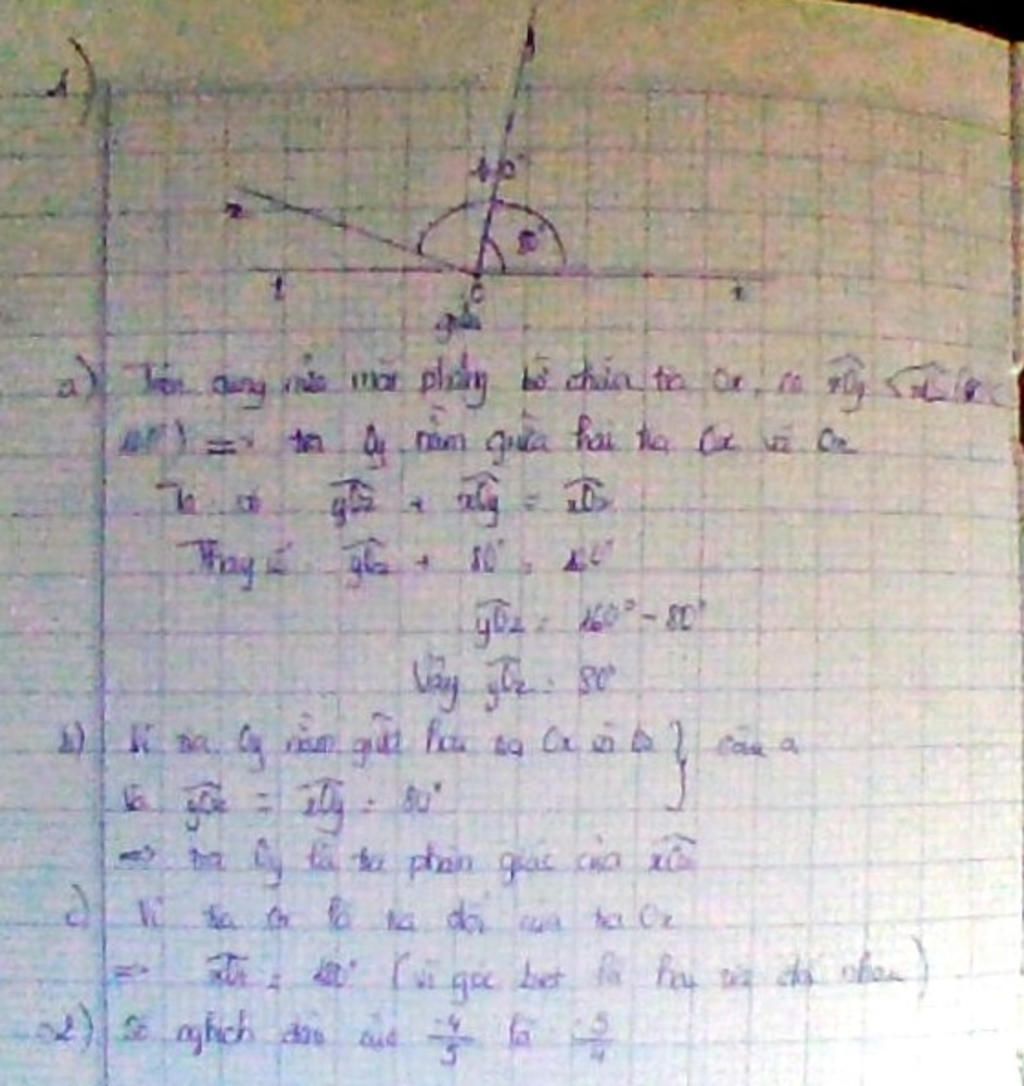 1)
160°
80°
z
t
O
x
a) Trên cùng nửa mặt phẳng bờ chứa tia Ox, có xOy < xOz
160°) => tia Oy nằm giữa hai tia Ox và Oz
Ta có yOz + xOy = xOz
Thay số yOz + 80° = 160°
yOz = 160° - 80°
Vậy yOz = 80°
b) Vì tia Oy nằm giữa hai tia Ox và Oz } câu a
Và yOz = xOy = 80°
=> tia Oy là tia phân giác của xOz
c) Vì tia Ot là tia đối của tia Ox
=> xOt = 180° (vì góc bẹt là hai tia đối nhau)
2) Số nghịch đảo của -4/5 là -5/4